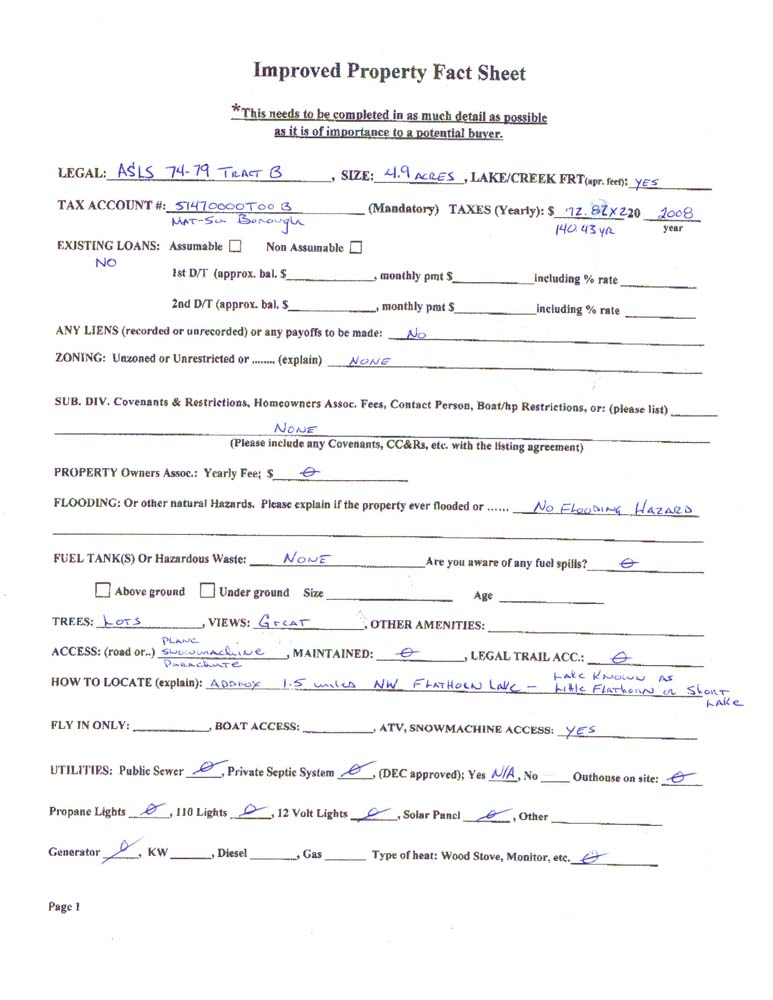 Improved Property Fact Sheet
*This needs to be completed in as much detail as possible
as it is of importance to a potential buyer.
LEGAL: ASLS 74-79 TRACT B, SIZE: 4.9 ACRES, LAKE/CREEK FRT(apr. feet): YES
TAX ACCOUNT #: 51470000T00 B (Mandatory) TAXES (Yearly): $ 72.82X2 20 2008
MAT-SU Borough 140.43 YR year
EXISTING LOANS: Assumable ☐ Non Assumable ☐
NO
1st D/T (approx. bal. $____, monthly pmt $____ including % rate ____
2nd D/T (approx. bal. $____, monthly pmt $____ including % rate ____
ANY LIENS (recorded or unrecorded) or any payoffs to be made: No
ZONING: Unzoned or Unrestricted or ........ (explain) NONE
SUB. DIV. Covenants & Restrictions, Homeowners Assoc. Fees, Contact Person, Boat/hp Restrictions, or: (please list) ____
NONE
(Please include any Covenants, CC&Rs, etc. with the listing agreement)
PROPERTY Owners Assoc.: Yearly Fee; $ 0
FLOODING: Or other natural Hazards. Please explain if the property ever flooded or ...... NO FLOODING HAZARD
FUEL TANK(S) Or Hazardous Waste: NONE Are you aware of any fuel spills? 0
☐ Above ground ☐ Under ground Size ____ Age ____
TREES: LOTS, VIEWS: GreAT, OTHER AMENITIES: ____
PLANE
ACCESS: (road or..) SNOWMACHINE, MAINTAINED: 0, LEGAL TRAIL ACC.: 0
PARACHUTE
LAKE KNOWN AS
HOW TO LOCATE (explain): Approx 1.5 miles NW FLATHORN LAKE - Little Flathorn or Short
LAKE
FLY IN ONLY: ____, BOAT ACCESS: ____, ATV, SNOWMACHINE ACCESS: YES
UTILITIES: Public Sewer 0, Private Septic System 0, (DEC approved); Yes N/A, No ____ Outhouse on site: 0
Propane Lights 0, 110 Lights 0, 12 Volt Lights 0, Solar Panel 0, Other ____
Generator 0, KW ____, Diesel ____, Gas ____ Type of heat: Wood Stove, Monitor, etc. 0
Page 1